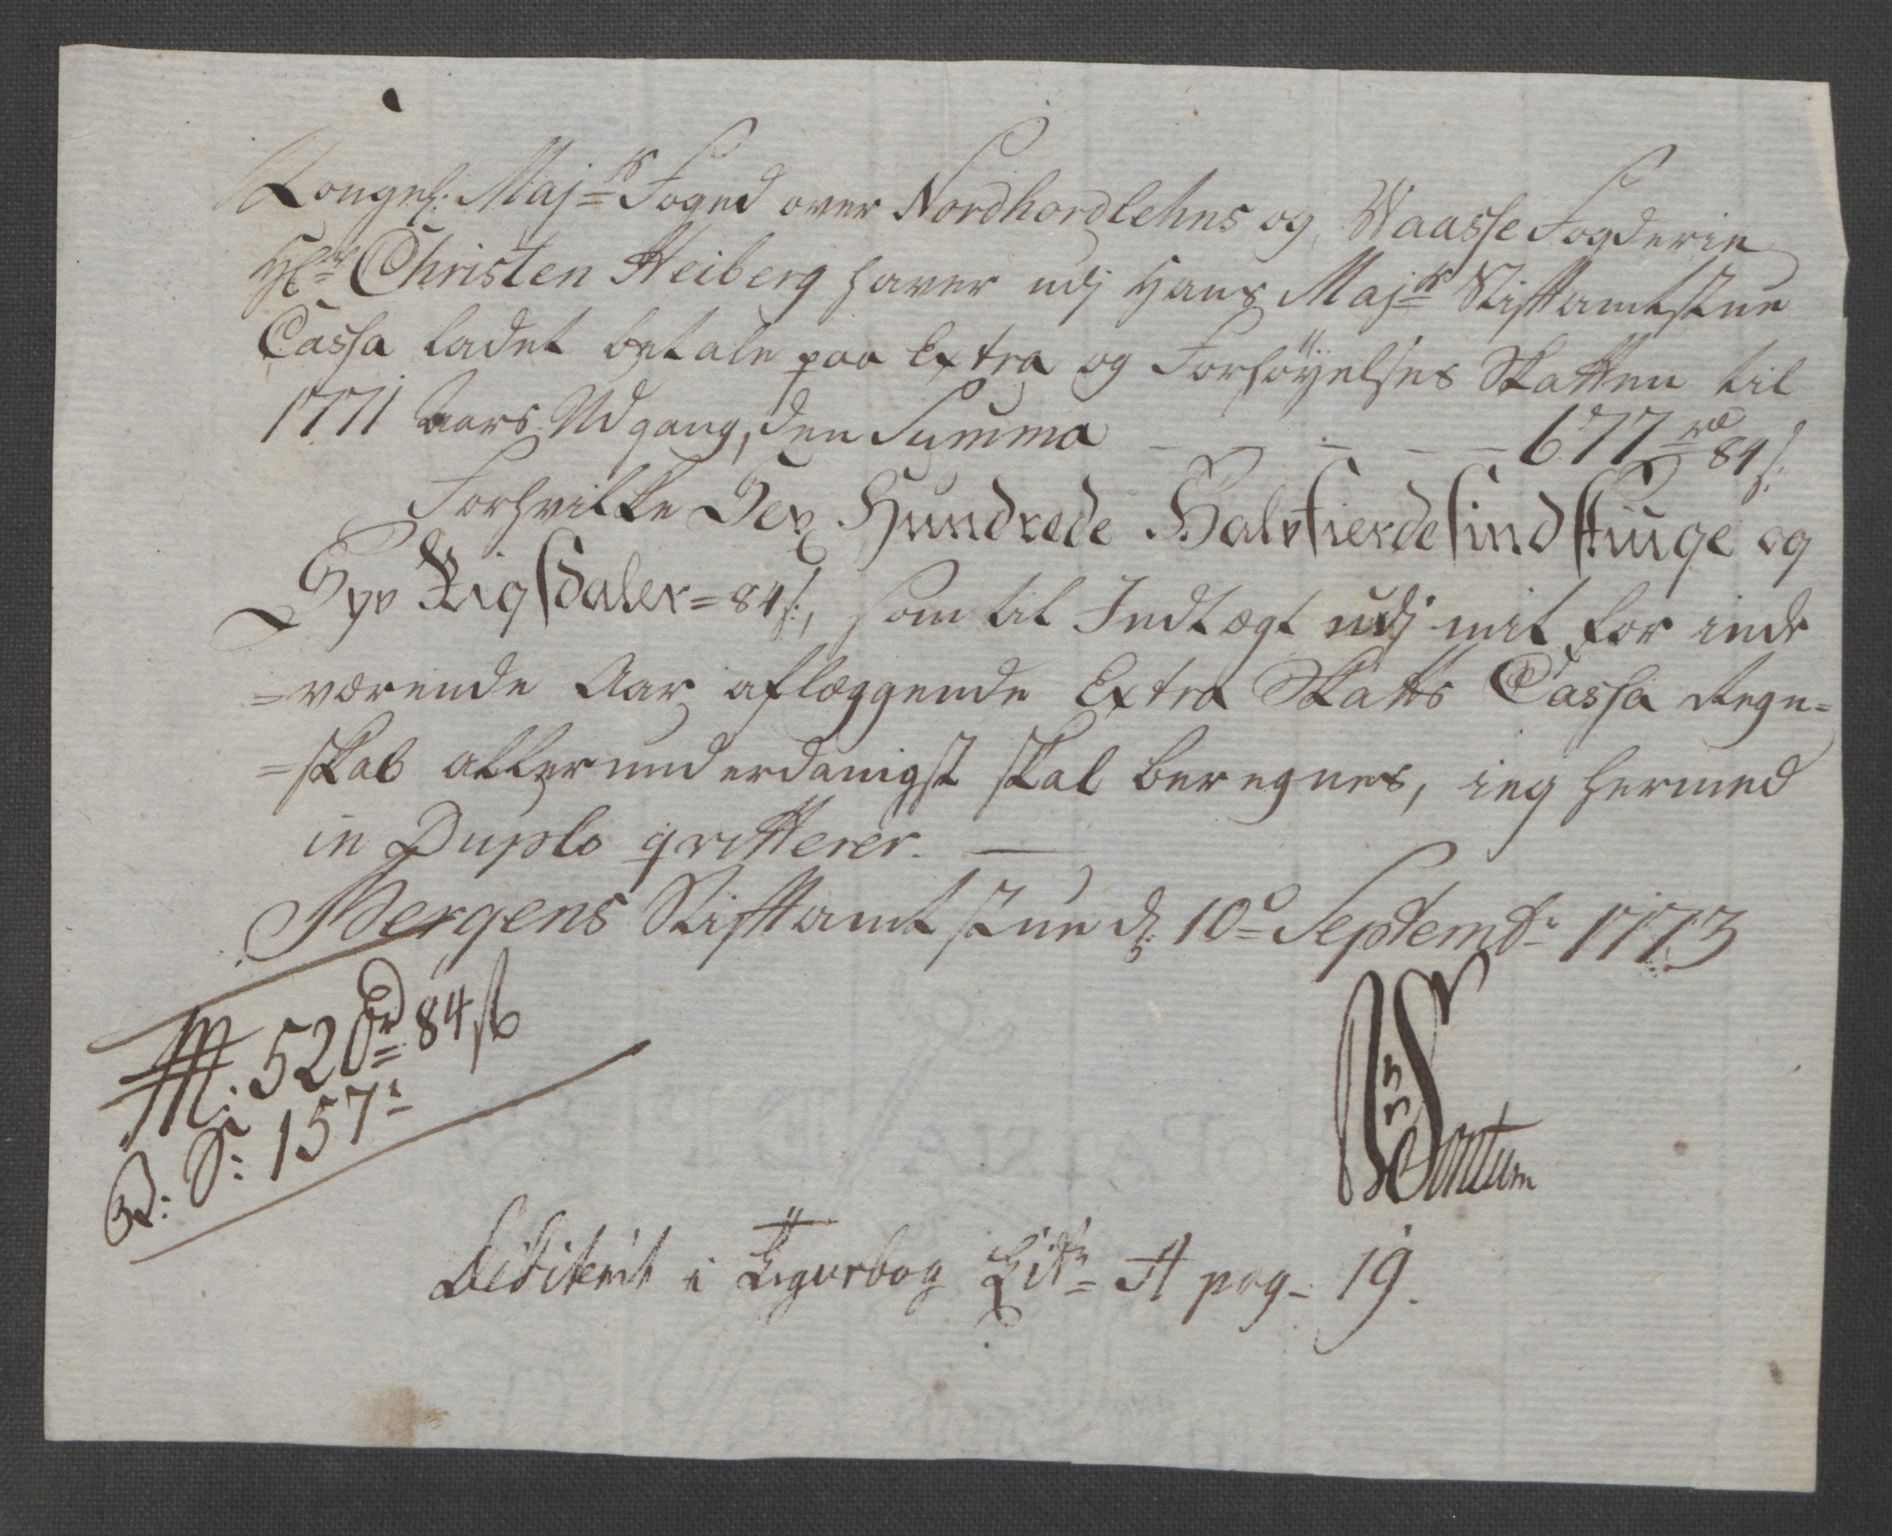 Kongel: Maj:ts Foged over Nordhordlehns og Waasse Fogderie
Hr: Christen Heiberg haver udj Hans Maj:ts Stifftamtstue
Cassa ladet betale paa Extra og Forhöyelses Skatten til
1771 Aars Udgang, den Summa — — — — — 677 rd 84 s:
Forhvilke Sex Hundrede Halvfierdesindstiuge og
Syv Rigsdaler = 84 s:, som til Indtægt udj mit for inde
=værende Aar aflæggende Extra Skatts Cassa Regn=
=skab allerunderdanigst skal beregnes, ieg hermed
in Duplo qvitterer. —
Bergens Stifftamtstue d: 10de Septembr: 1773
M: 520 rd 84 s
S: 157:
Sontum
Debiterit i Figurbog Litr: A pag- 19.